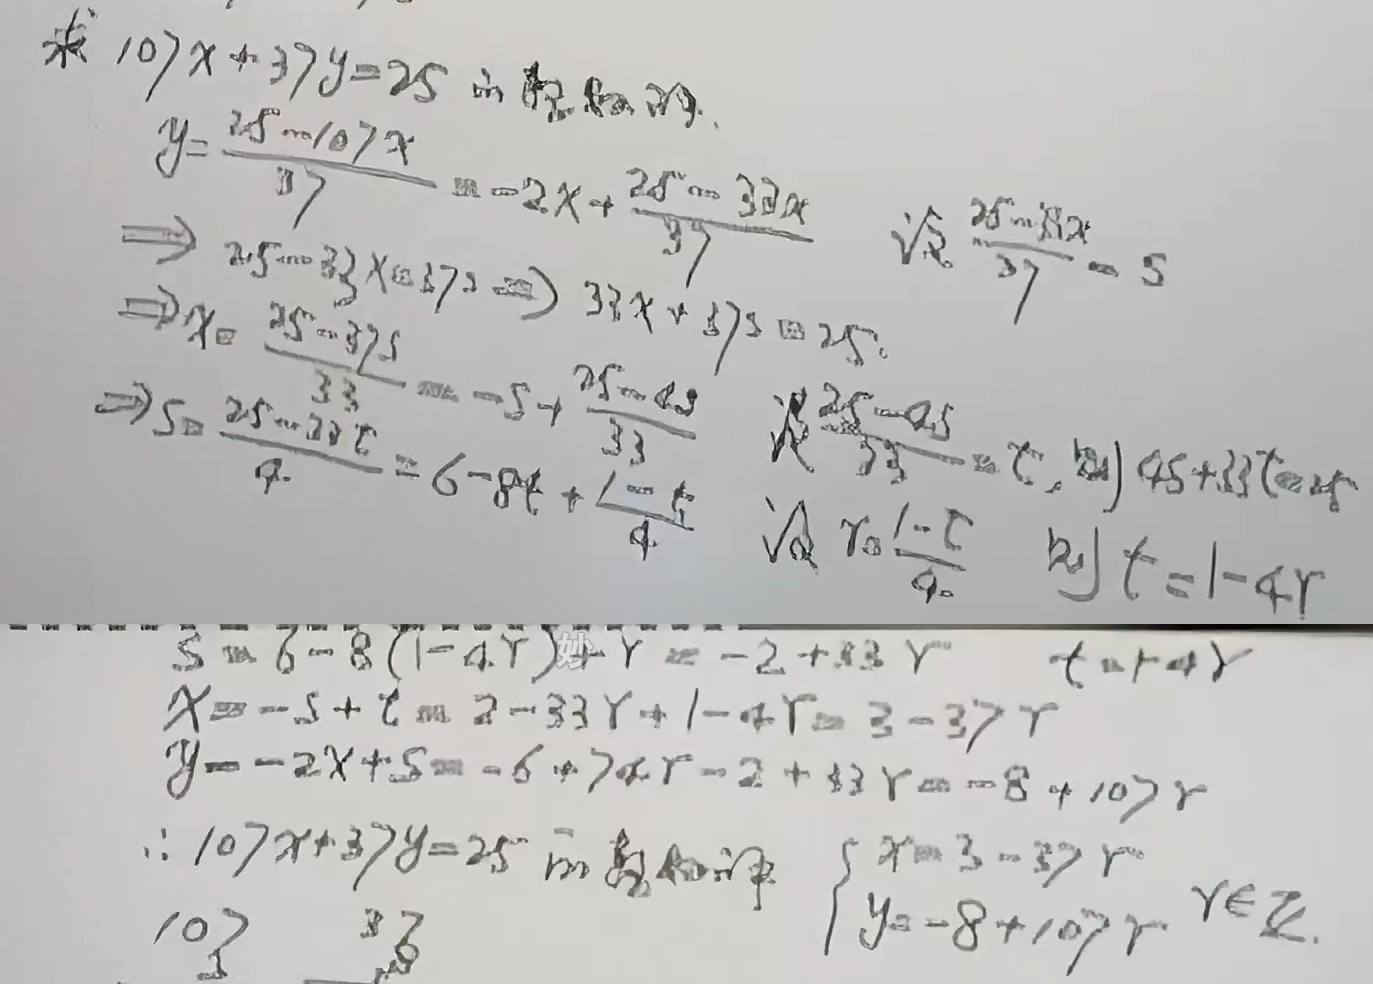 求 107x+37y=25 的整数解.
y=\frac{25-107x}{37}=-2x+\frac{25-33x}{37} 设 \frac{25-33x}{37}=s
⇒ 25-33x=37s ⇒ 33x+37s=25.
⇒ x=\frac{25-37s}{33}=-s+\frac{25-4s}{33} 设 \frac{25-4s}{33}=t, 则 4s+33t=25
⇒ s=\frac{25-33t}{4}=6-8t+\frac{1-t}{4} 设 r=\frac{1-t}{4} 则 t=1-4r
s=6-8(1-4r)+r=-2+33r t=1-4r
x=-s+t=2-33r+1-4r=3-37r
y=-2x+s=-6+74r-2+33r=-8+107r
∴ 107x+37y=25 的整数解 { x=3-37r
y=-8+107r r∈Z.
107 37
妙